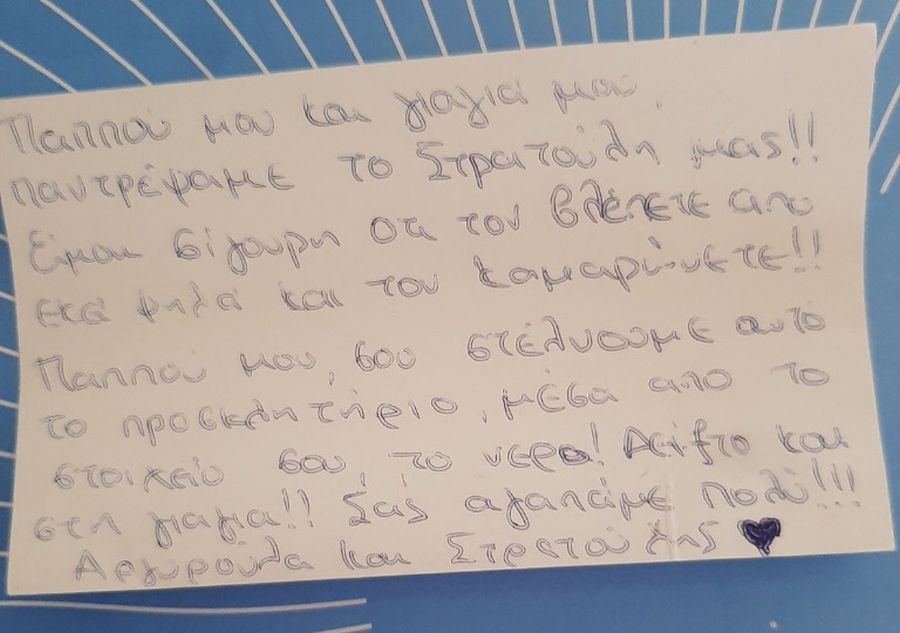 Παππού μου και γιαγιά μου,
παντρέψαμε το Στρατούλη μας!!
Είμαι σίγουρη οτι τον βλέπετε απο
εκά ψηλά και τον καμαρώνετε!!
Παππού μου, σου στέλνουμε αυτό
το προσκλητήριο, μέσα απο το
στοιχείο σου, το νερο! Δείξτο και
στη γιαγιά!! Σας αγαπάμε πολύ!!!
Αργυρούλα και Στρατούλης